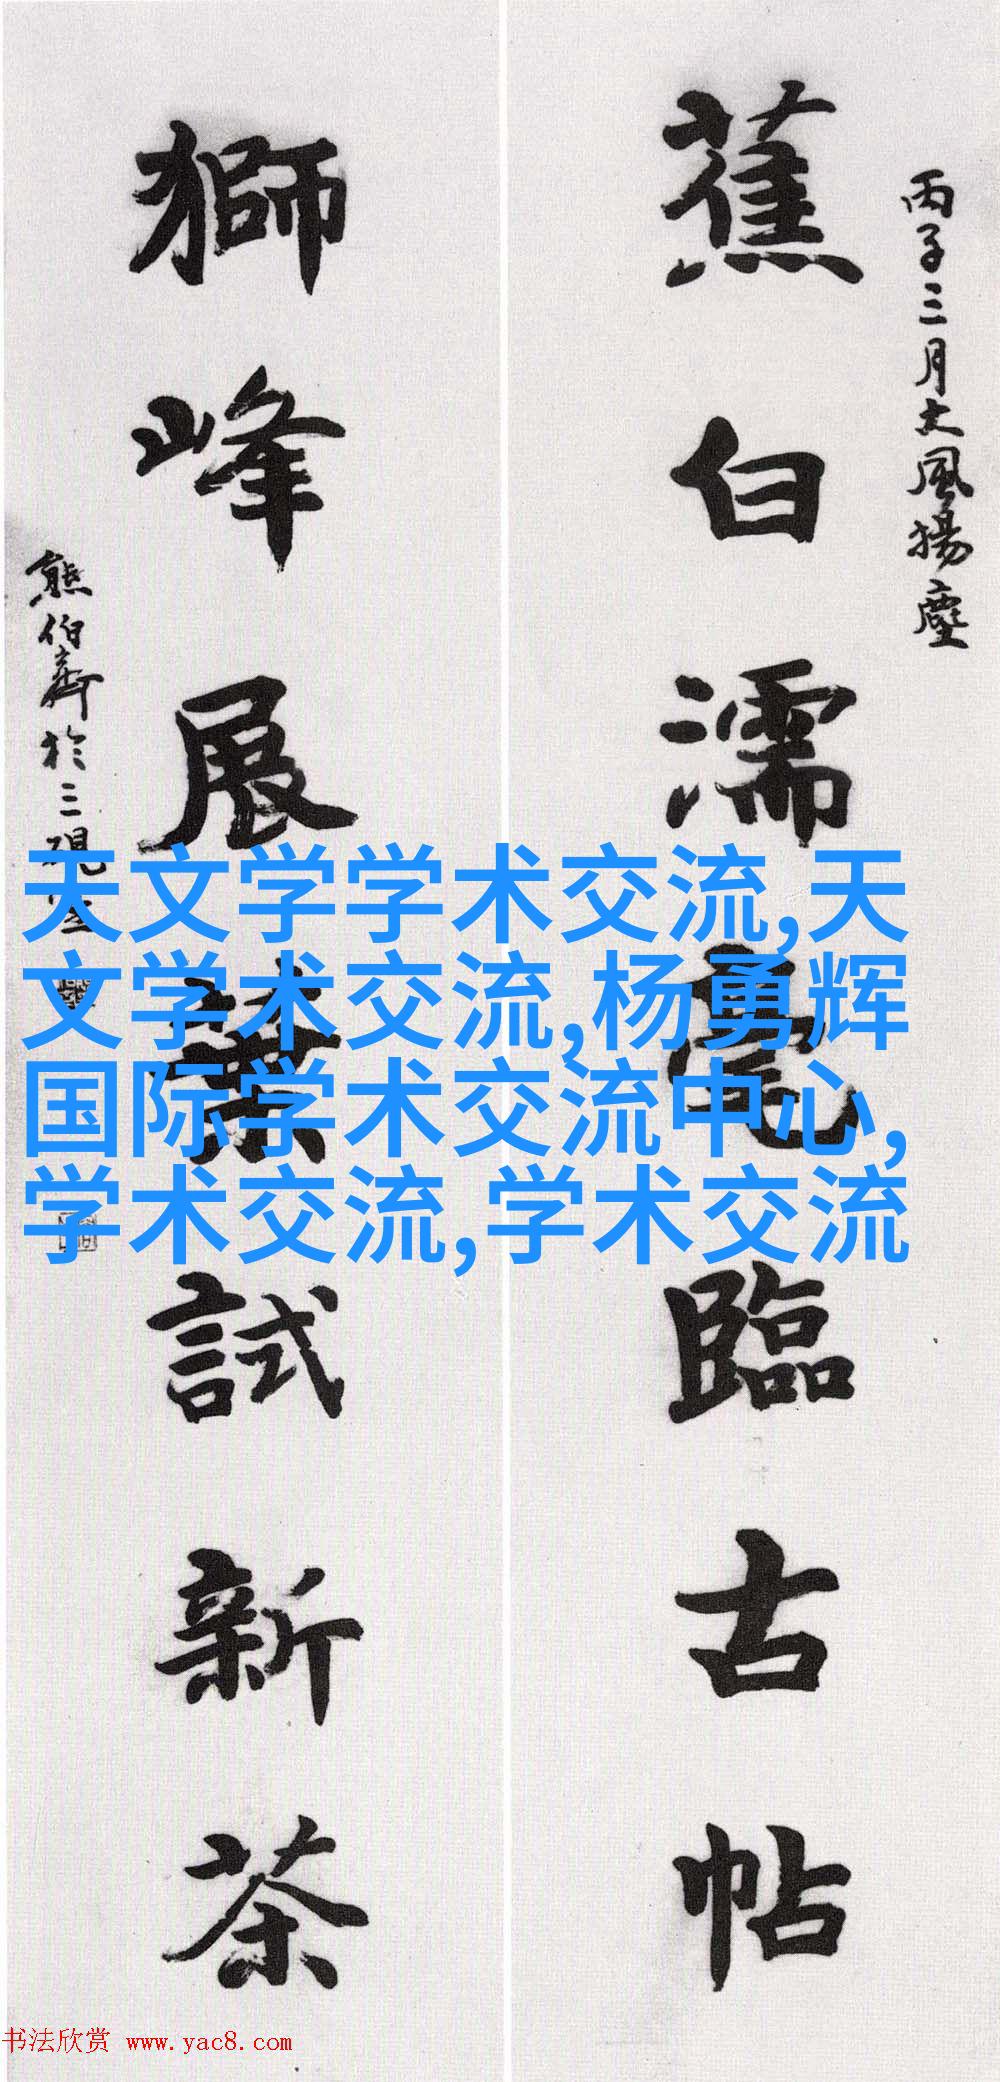 丙子三月大風揚塵
蕉白濡毫臨古帖
獅峰展葉試新茶
熊伯齊於三硯室
天文学学术交流,天
文学术交流,杨勇辉
国际学术交流中心,
学术交流,学术交流
书法欣赏 www.yac8.com